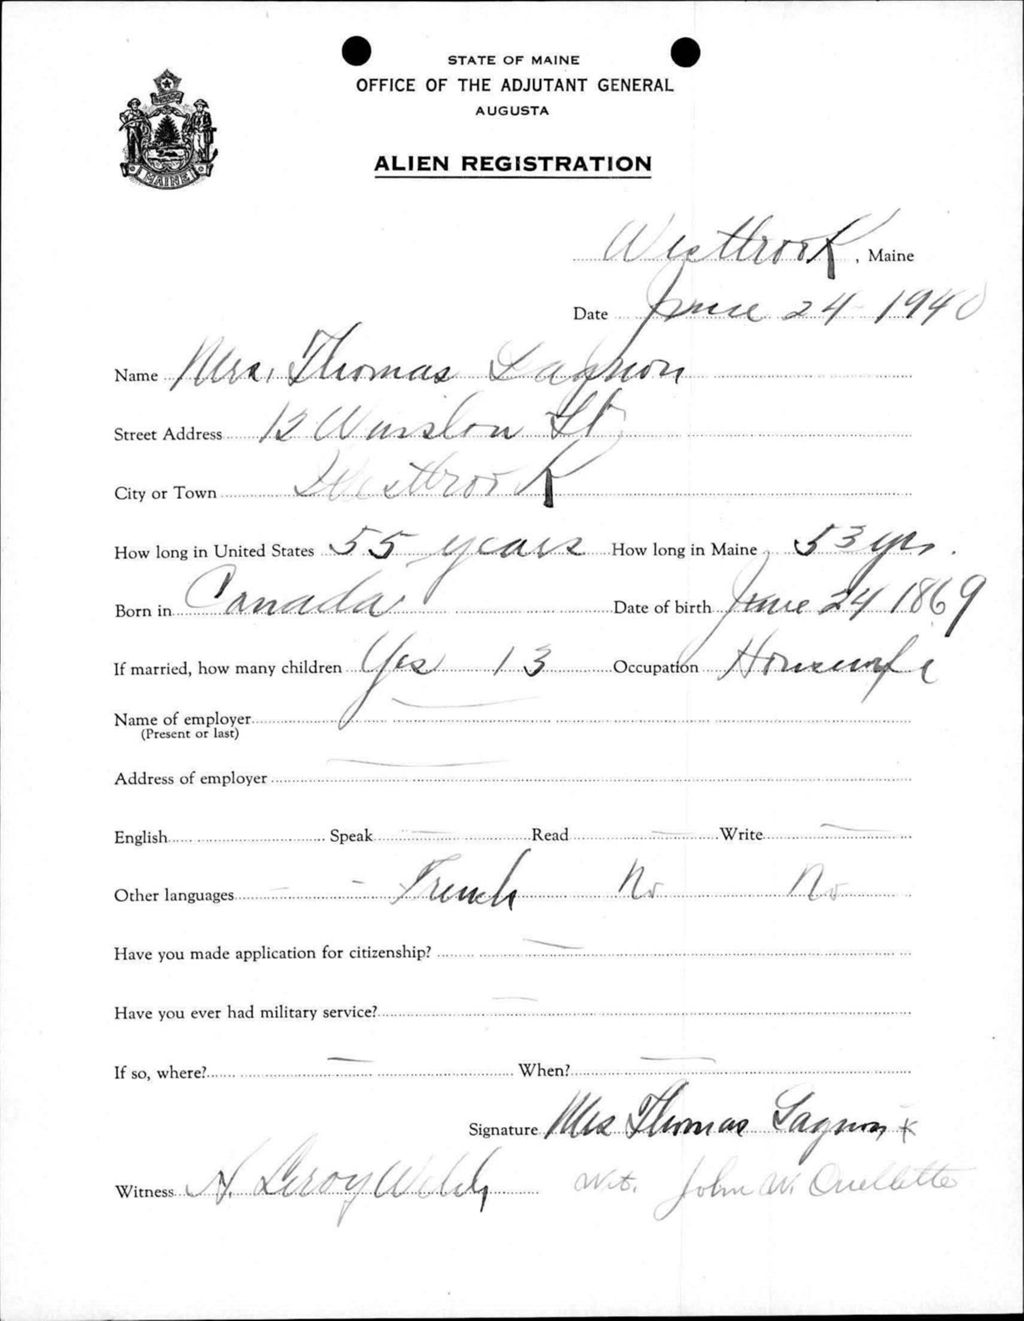 STATE OF MAINE
OFFICE OF THE ADJUTANT GENERAL
AUGUSTA
ALIEN REGISTRATION
MAINE
Westbrook, Maine
Date June 24 1940
Name Mrs. Thomas Gagnon
Street Address 12 Winslow St
City or Town Westbrook
How long in United States 55 years How long in Maine 53 yrs.
Born in Canada Date of birth June 24 1869
If married, how many children Yes 13 Occupation Housewife
Name of employer —
(Present or last)
Address of employer —
English Speak — Read — Write —
Other languages - - French No No
Have you made application for citizenship? —
Have you ever had military service? —
If so, where? — When? —
Signature Mrs Thomas Gagnon x
Witness Leroy Welch Wit. John W. Ouellette